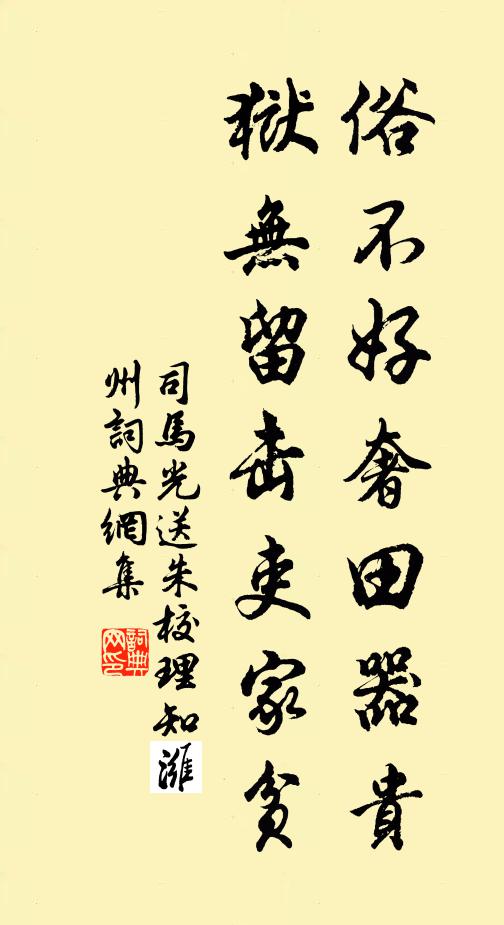 俗不好奢田器貴
獄無留击吏家貧
司馬光送朱校理知濰
州詞典網集
詞典
网印